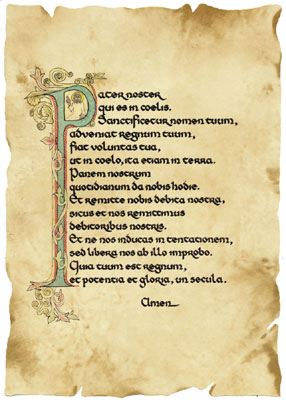 Pater noster
qui es in coelis.
Sanctificetur nomen tuum,
adveniat regnum tuum,
fiat voluntas tua,
ut in coelo, ita etiam in terra.
Panem nostrum
quotidianum da nobis hodie.
Et remitte nobis debita nostra,
sicut et nos remittimus
debitoribus nostris.
Et ne nos inducas in tentationem,
sed libera nos ab illo improbo.
Quia tuum est regnum,
et potentia et gloria, in secula.
Amen